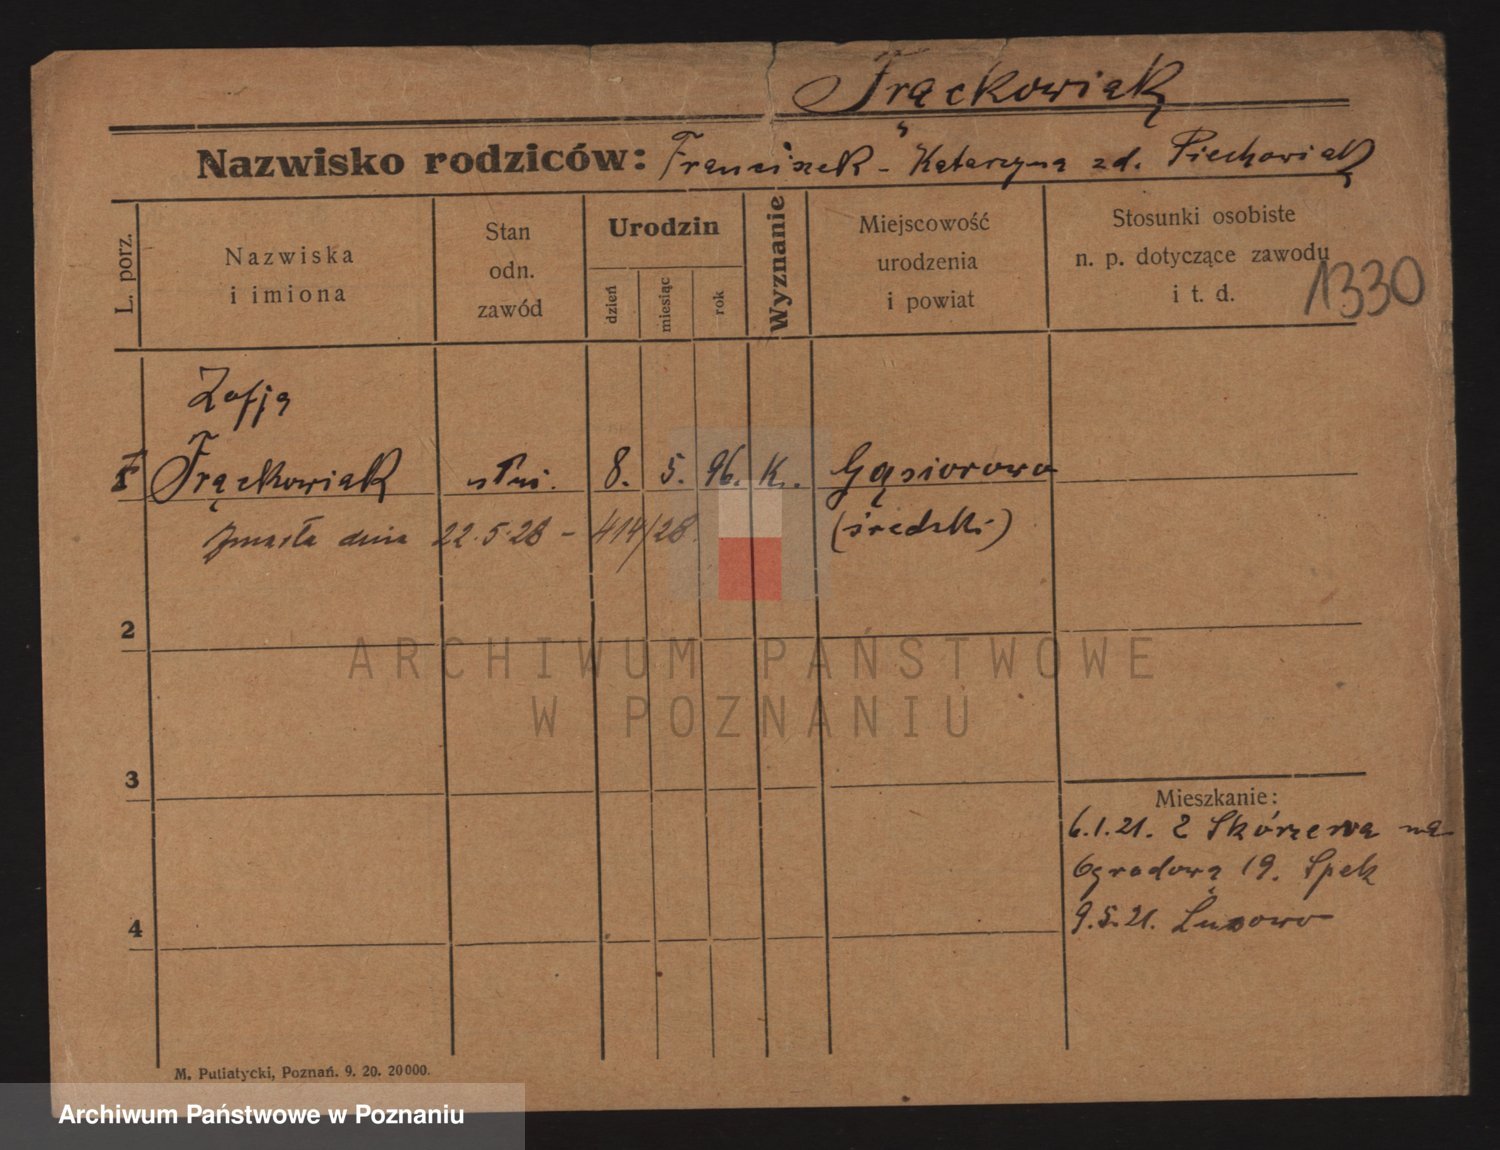 Frąckowiak
Nazwisko rodziców: Franciszek - Katarzyna zd. Piechowiak
L. porz.
Nazwiska
i imiona
Stan
odn.
zawód
Urodzin
dzień
miesiąc
rok
Wyznanie
Miejscowość
urodzenia
i powiat
Stosunki osobiste
n. p. dotyczące zawodu
i t. d.
1330
Zofja
Frąckowiak służ. 8. 5. 96. K. Gąsiorowo
zmarła dnia 22.5.28 - 414/28. (średzki)
2
ARCHIWUM PAŃSTWOWE
W POZNANIU
3
Mieszkanie:
6.1.21. z Skórzewa na
Ogrodową 19. Spek
4
9.5.21. Lusowo
M. Putiatycki, Poznań. 9. 20. 20000.
Archiwum Państwowe w Poznaniu